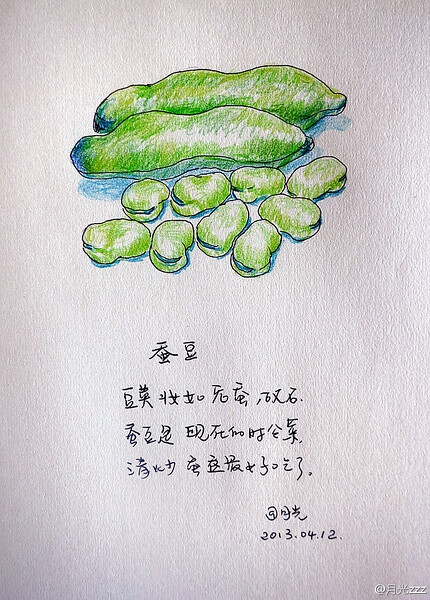 蚕豆
豆荚状如老蚕,故名.
蚕豆是现在的时令菜,
清炒蚕豆最好吃了。
@月光
2013.04.12.
@月光zzz